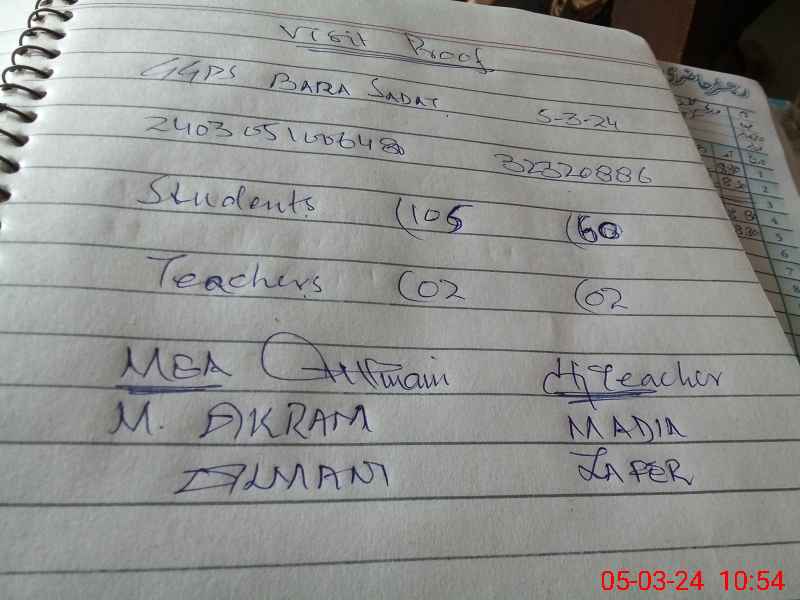 Visit Proof
GGPS BARA SADAT. 5-3-24
2403051006480 32320886
Students (105 (60
Teachers (02 (02
MEA H/Teacher
M. AKRAM MADIA
ALMANI ZAFER
05-03-24 10:54